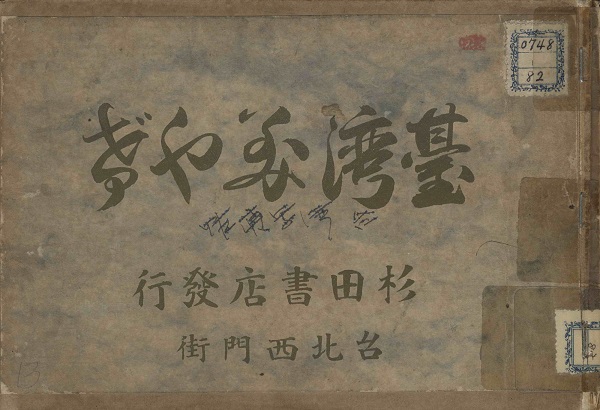 0748
82
臺湾みやげ
杉田書店發行
台北西門街